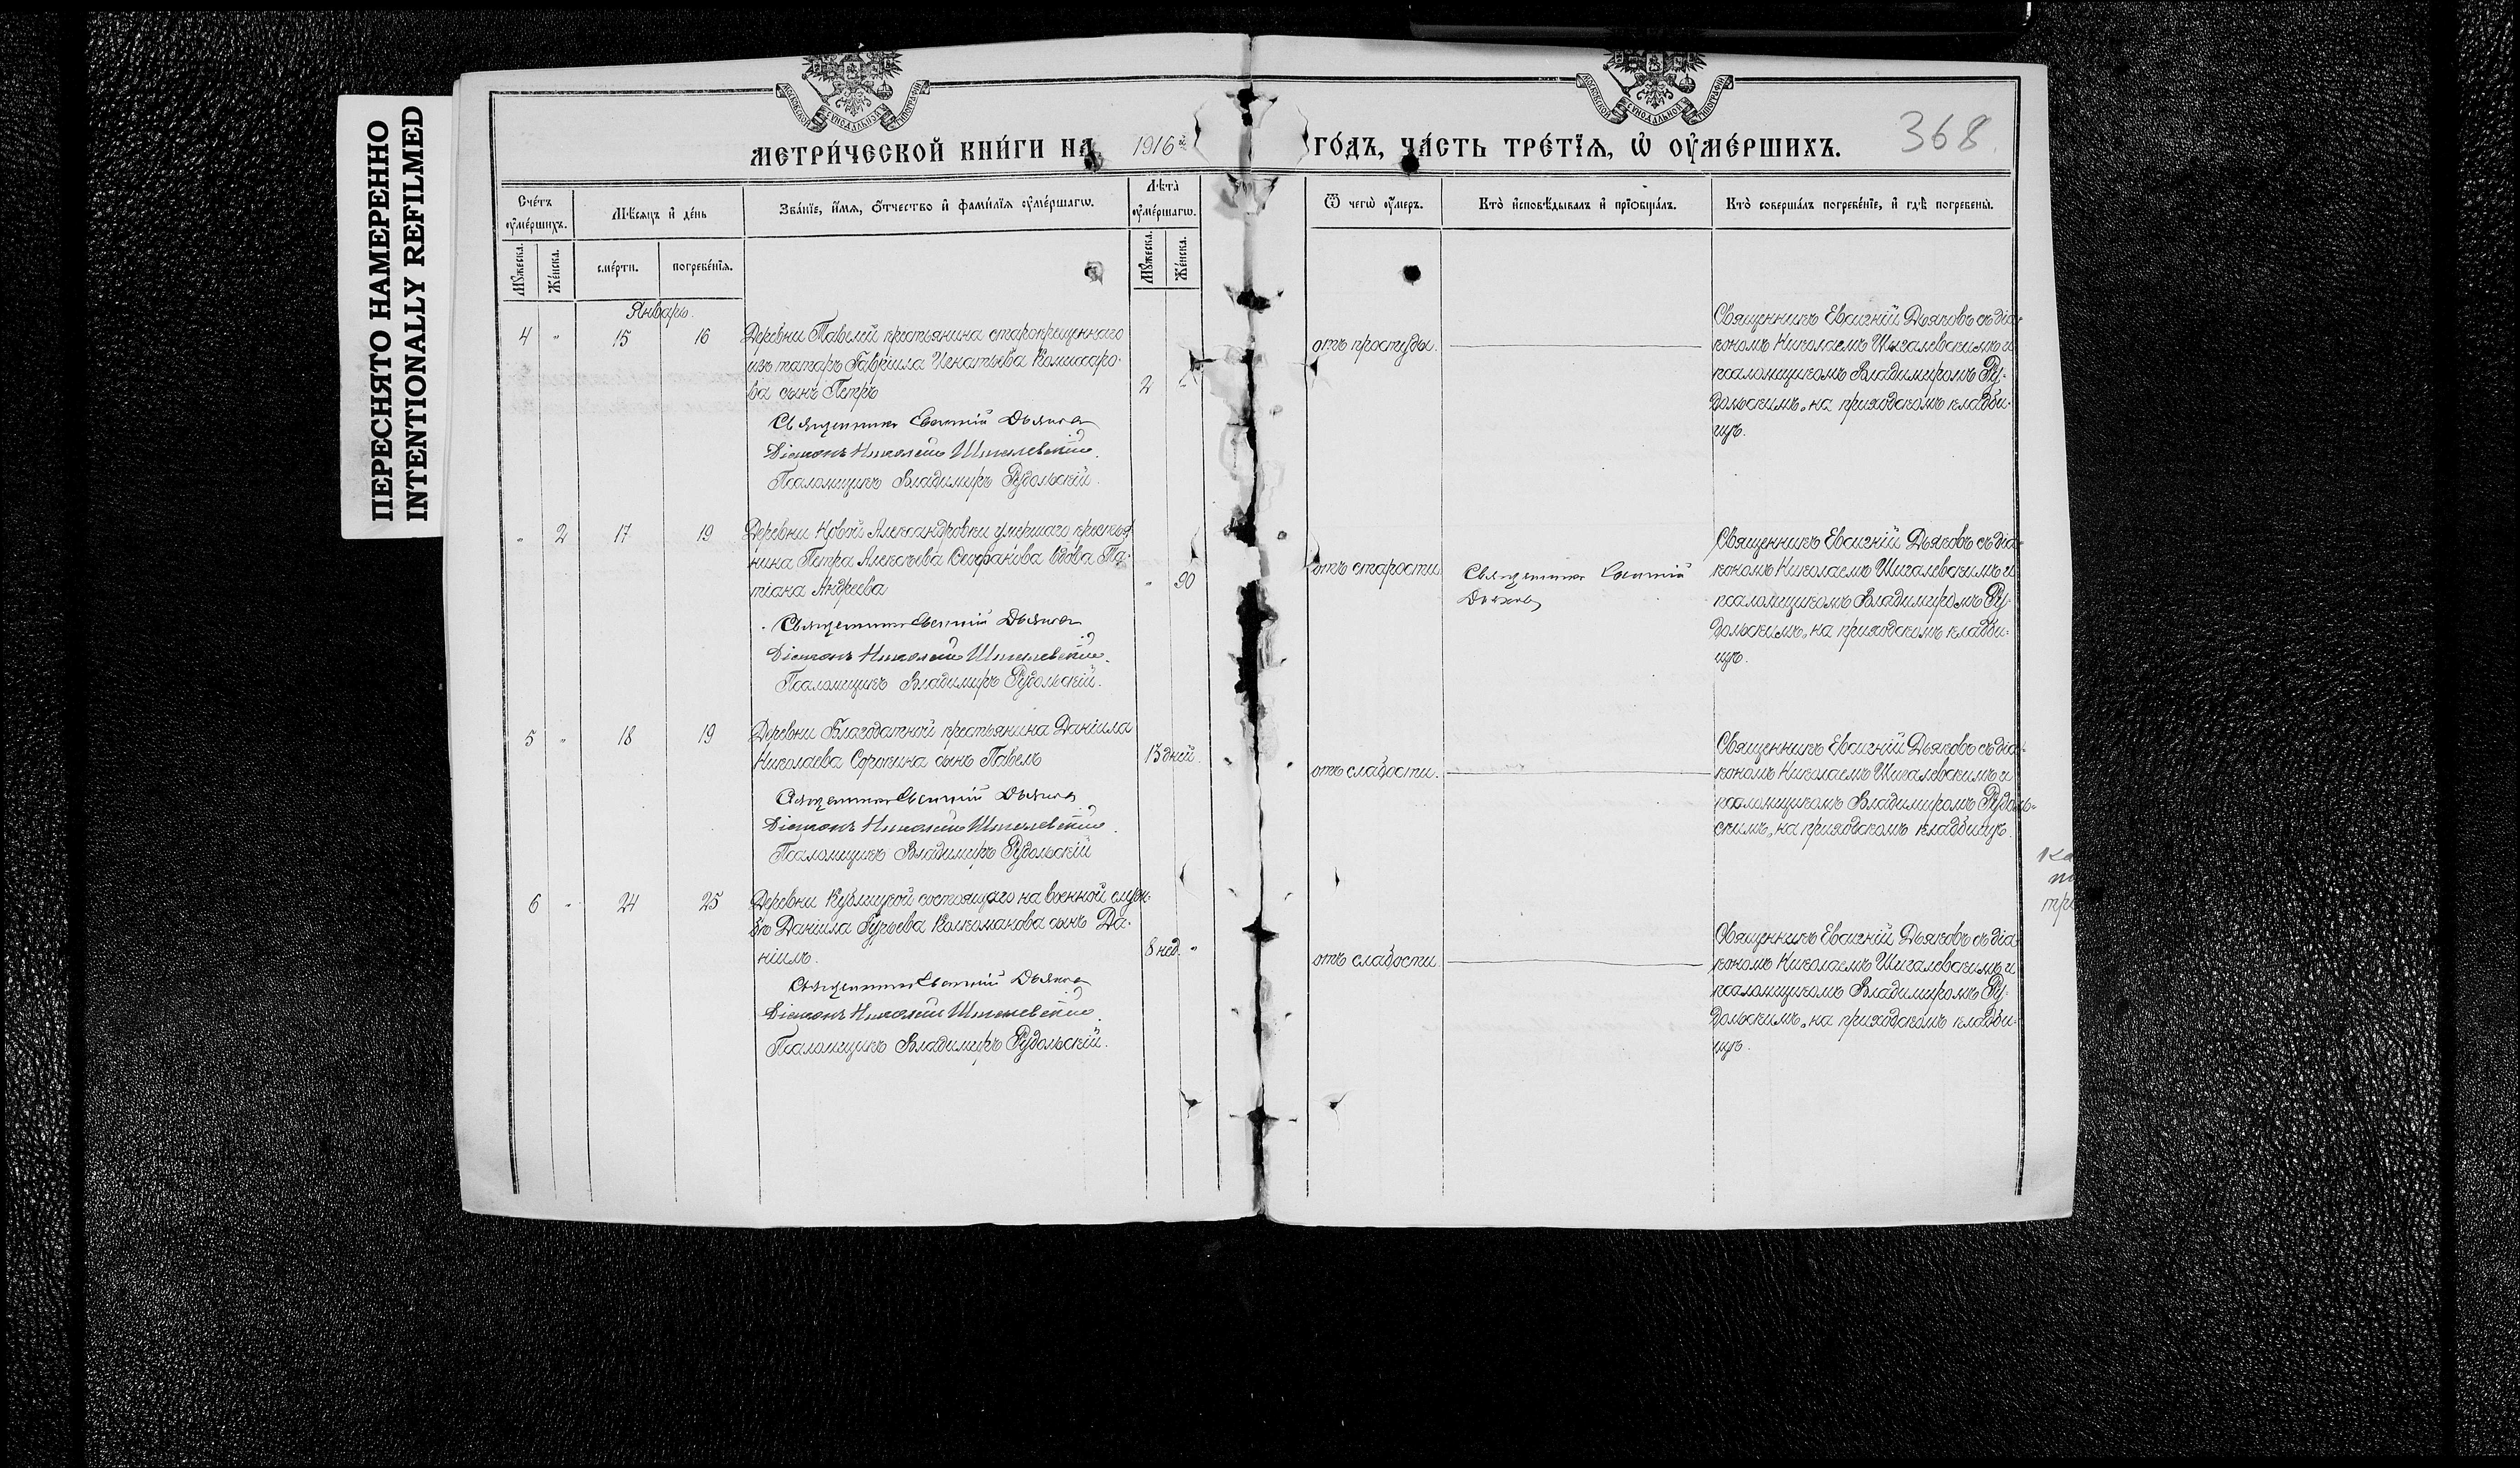 ПЕРЕСНЯТО НАМЕРЕННО
INTENTIONALLY REFILMED
МОСКОВСКОЙ СѴНОДАЛЬНОЙ ТИПОГРАФІИ
МОСКОВСКОЙ СѴНОДАЛЬНОЙ ТИПОГРАФІИ
МЕТРИ́ЧЕСКОЙ КНИ́ГИ НА 1916й ГО́ДЪ, ЧА́СТЬ ТРЕ́ТЇѦ, Ѡ҆ ОУ҆МЕ́РШИХЪ.
368.
Сче́тъ оу҆ме́ршихъ.
Мѣ́сяцъ и҆ де́нь
Зва́нїе, и҆́мѧ, ѻ҆́тчество и҆ фами́лїѧ оу҆ме́ршагѡ.
Лѣта̀ оу҆ме́ршагѡ.
Ѿ чегѡ̀ оу҆́меръ.
Кто̀ и҆сповѣ́дывалъ и҆ прїѡбща́лъ.
Кто̀ соверша́лъ погребе́нїе, и҆ гдѣ̀ погребены̀.
Мꙋ́жеска.
Же́нска.
сме́рти.
погребе́нїѧ.
Мꙋ́жеска.
Же́нска.
Январь.
4 " 15 16
Деревни Тавелей крестьянина старокрещеннаго
изъ татаръ Гавріила Игнатьева Комиссаро-
ва сынъ Петръ
2 "
Священникъ Евгеній Дьяковъ
Діаконъ Николай Шигалевскій.
Псаломщикъ Владимиръ Рудольскій.
отъ простуды.
Священникъ Евгеній Дьяковъ съ діа-
кономъ Николаемъ Шигалевскимъ и
псаломщикомъ Владимиромъ Ру-
дольскимъ, на приходскомъ кладби-
щѣ.
" 2 17 19
Деревни Новой Александровки умершаго крестья-
нина Петра Алексѣева Ѳеофанова вдова Та-
тіана Андреева
" 90
Священникъ Евгеній Дьяковъ
Діаконъ Николай Шигалевскій.
Псаломщикъ Владимиръ Рудольскій.
отъ старости.
Священникъ Евгеній
Дьяковъ
Священникъ Евгеній Дьяковъ съ діа-
кономъ Николаемъ Шигалевскимъ и
псаломщикомъ Владимиромъ Ру-
дольскимъ, на приходскомъ кладби-
щѣ.
5 " 18 19
Деревни Благодатной крестьянина Даніила
Николаева Сорокина сынъ Павелъ
13 дней.
Священникъ Евгеній Дьяковъ
Діаконъ Николай Шигалевскій.
Псаломщикъ Владимиръ Рудольскій
отъ слабости.
Священникъ Евгеній Дьяковъ съ діа-
кономъ Николаемъ Шигалевскимъ и
псаломщикомъ Владимиромъ Рудоль-
скимъ, на приходскомъ кладбищѣ.
6 " 24 25
Деревни Кублицкой состоящаго на военной служ-
бѣ Даніила Гурьева Колчманова сынъ Да-
ніилъ.
8 нед. "
Священникъ Евгеній Дьяковъ
Діаконъ Николай Шигалевскій.
Псаломщикъ Владимиръ Рудольскій.
отъ слабости.
Священникъ Евгеній Дьяковъ съ діа-
кономъ Николаемъ Шигалевскимъ и
псаломщикомъ Владимиромъ Ру-
дольскимъ, на приходскомъ кладби-
щѣ.